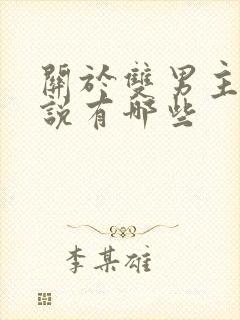 關於雙男主
說有哪些
李某雄